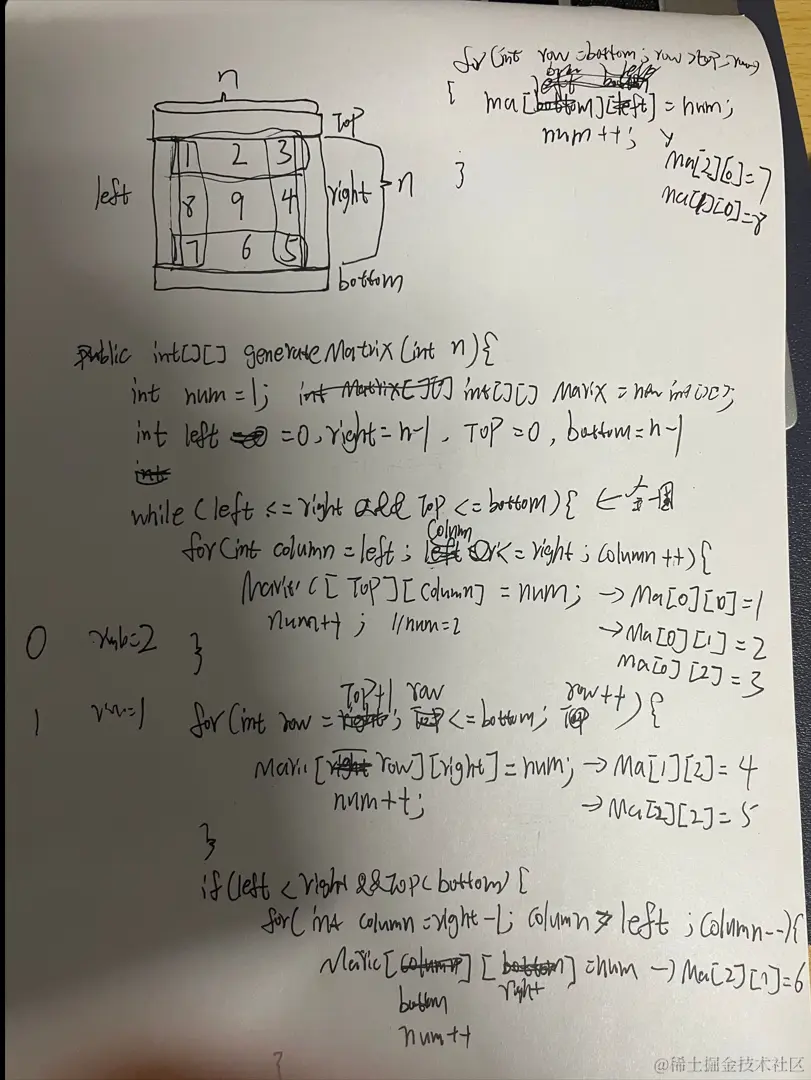 n
Top
1 2 3
left 8 9 4 right n
7 6 5
bottom
for(int row=bottom; row>top; row)
{ ma[][] = num;
num++;
}
Ma[2][0]=7
Ma[1][0]=8
public int[][] generateMatrix(int n){
int num=1; int[][] Marix = new int[][];
int left =0, right=n-1, Top=0, bottom=n-1
while (left <= right && Top <= bottom){ ←
for(int column=left; column <= right; column++){
[Top][column] = num; → Ma[0][0]=1
num++; //num=2 → Ma[0][1]=2
Ma[0][2]=3
0 =2 }
1 =1 for(int row=Top+1; row <=bottom; row++){
Maric[row][right]=num; → Ma[1][2]=4
num++; → Ma[2][2]=5
}
if(left < right && Top< bottom){
for(int column=right-1; column > left; column--){
Maric[bottom][right] =num → Ma[2][1]=6
num++
@稀土掘金技术社区